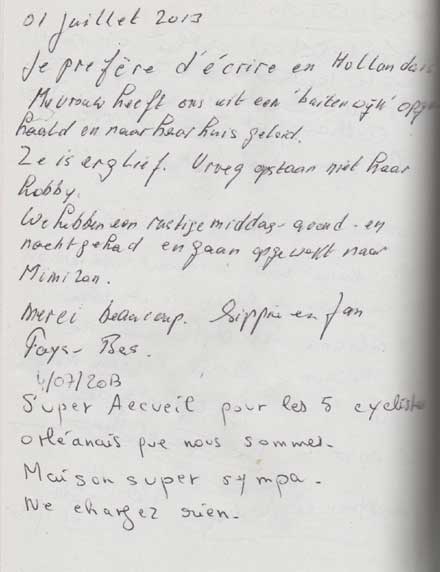 01 juillet 2013
Je prefère d'écrire en Hollandais
Mevrouw heeft ons uit een 'buitenwijk' opge
haald en naar haar huis geleid.
Ze is erg lief. Vroeg opstaan niet haar
hobby.
We hebben een rustige middag - avond - en
nacht gehad en gaan opgewekt naar
Mimizan.
Merci beaucoup. Sippie en Jan
Pays-Bas.
4/07/2013
Super Accueil pour les 5 cyclistes
orléanais que nous sommes.
Maison super sympa.
Ne changez rien.